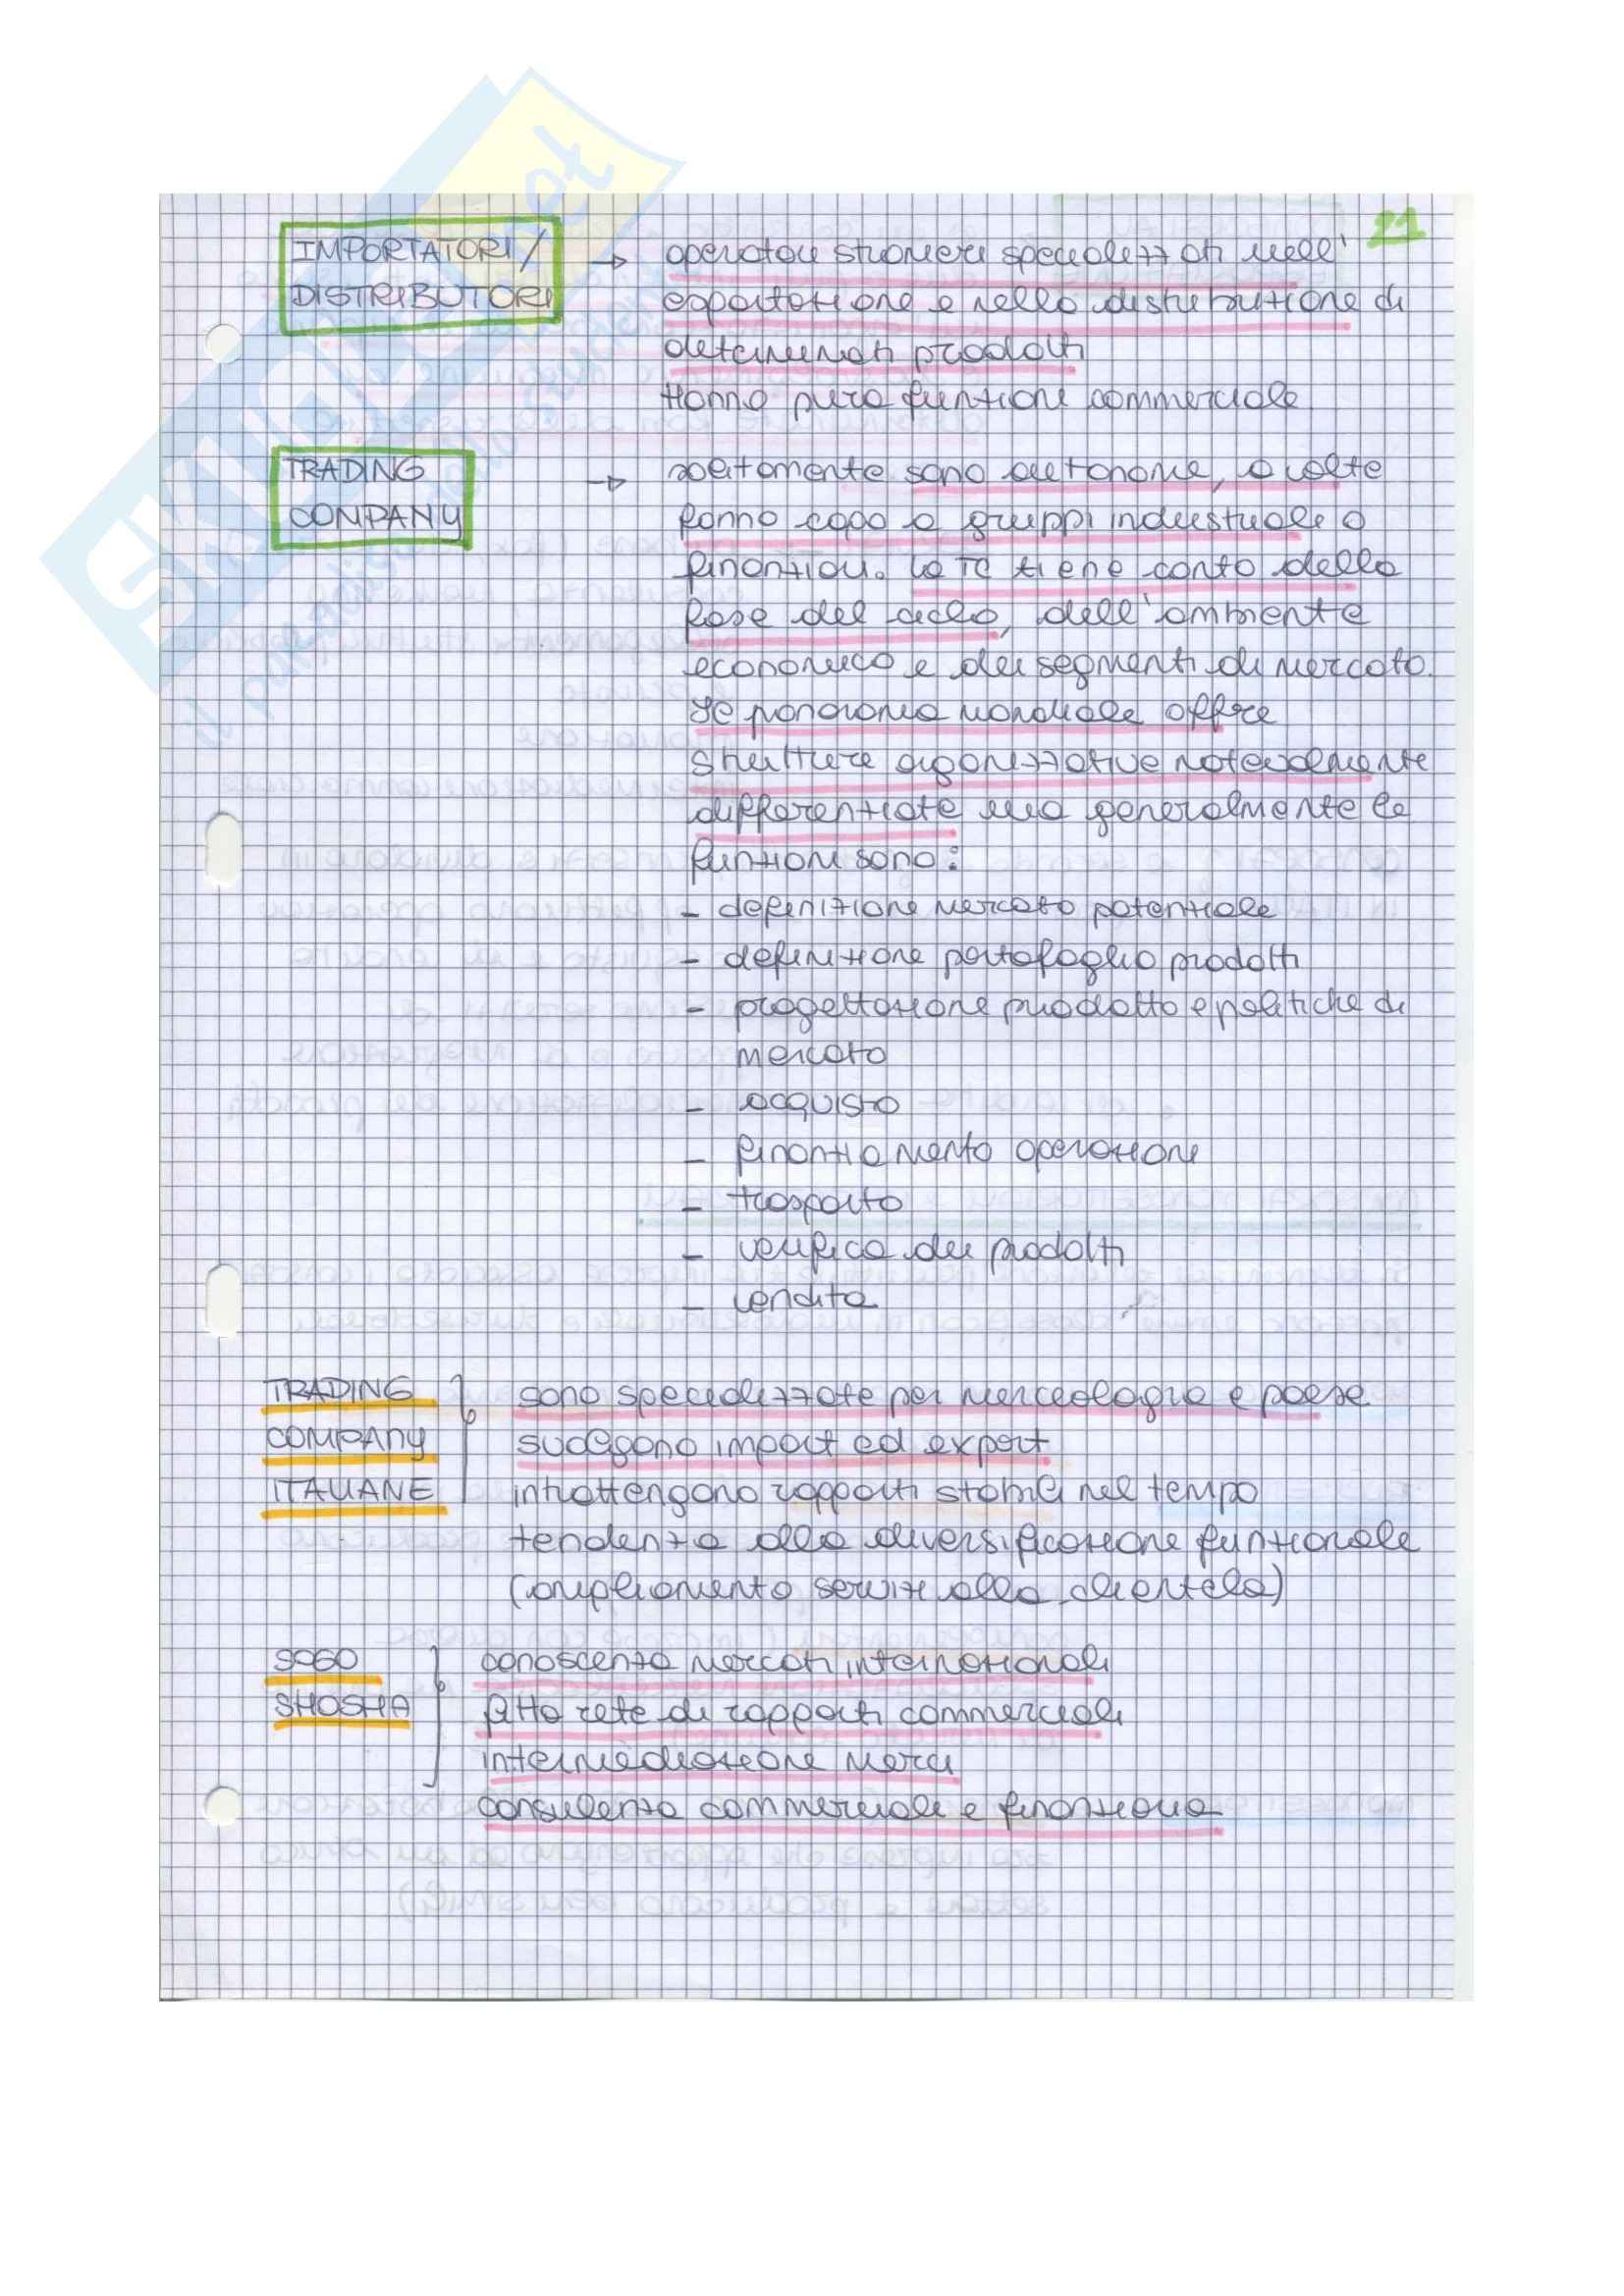 21
IMPORTATORI/ → operatori stranieri specializzati nell'
DISTRIBUTORI esportazione e nella distribuzione di
determinati prodotti
Hanno pura funzione commerciale
TRADING → solitamente sono autonome, a volte
COMPANY fanno capo a gruppi industriali o
finanziari. La TC tiene conto della
fase del ciclo, dell'ambiente
economico e dei segmenti di mercato.
Il panorama mondiale offre
strutture organizzative notevolmente
differenziate ma generalmente le
funzioni sono:
- definizione mercato potenziale
- definizione portafoglio prodotti
- progettazione prodotto e politiche di
mercato
- acquisto
- finanziamento operazione
- trasporto
- verifica dei prodotti
- vendita
TRADING } sono specializzate per merceologia e paese
COMPANY svolgono import ed export
ITALIANE intrattengono rapporti stabili nel tempo
tendenza alla diversificazione funzionale
(ampliamento servizi alla clientela)
SOGO } conoscenza mercati internazionali
SHOSHA fitta rete di rapporti commerciali
intermediazione merci
consulenza commerciale e finanziaria
SKUOLA.net
il paradiso dello studente